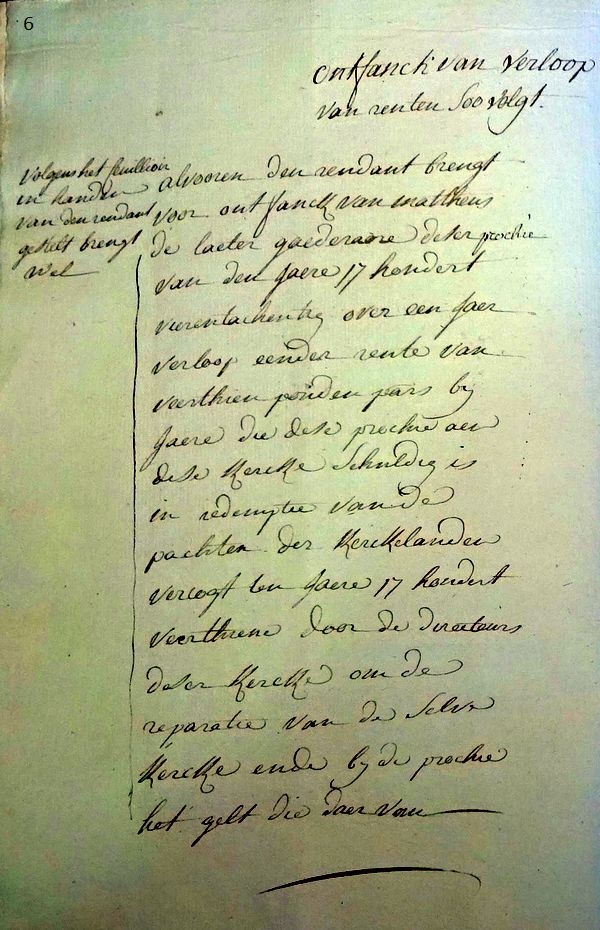 6
ontfanck van verloop
van renten soo volgt.
volgens het feuillioir
in handen
van den rendant
gestelt brengt
wel
alvooren den rendant brengt
voor ontfanck van mattheus
de laeter gaederaore deser prochie
van den jaere 17 hondert
vierentachentig over een jaer
verloop eender rente van
veerthien ponden pars by
jaere die dese prochie aen
dese kercke schuldig is
in redemptie van de
pachten der kerckelanden
vercogt ten jaere 17 hondert
veerthiene door de directeurs
deser kercke om de
reparatie van de selve
kercke ende by de prochie
het gelt die daer van